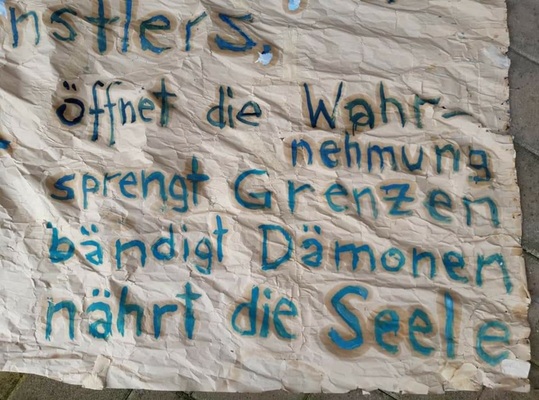 nstlers,
öffnet die Wahr-
nehmung
sprengt Grenzen
bändigt Dämonen
nährt die Seele